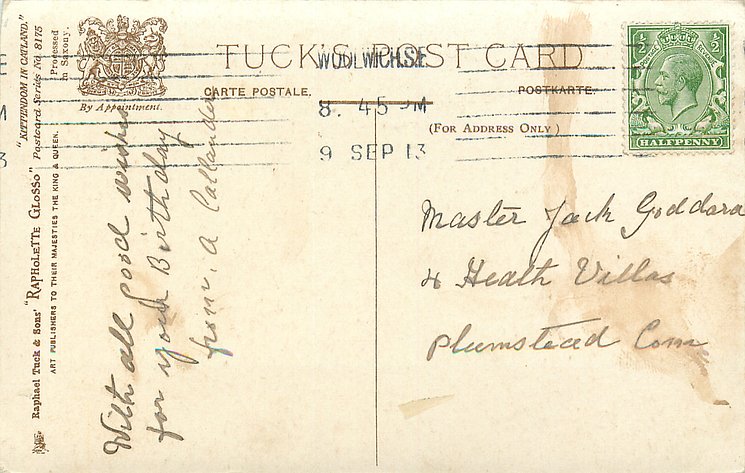 TUCK'S POST CARD
CARTE POSTALE.
POSTKARTE.
(FOR ADDRESS ONLY)
By Appointment.
WOOLWICH.S.E
8. 45 PM
9 SEP 13
½ ½
HALFPENNY
"KITTENDOM IN CATLAND."
Raphael Tuck & Sons' "RAPHOLETTE GLOSSO" Postcard Series No. 8175
ART PUBLISHERS TO THEIR MAJESTIES THE KING & QUEEN.
Processed
in Saxony.
With all good wishes
for your Birthday
from, A Callander
Master Jack Goddard
4 Heath Villas
Plumstead Com